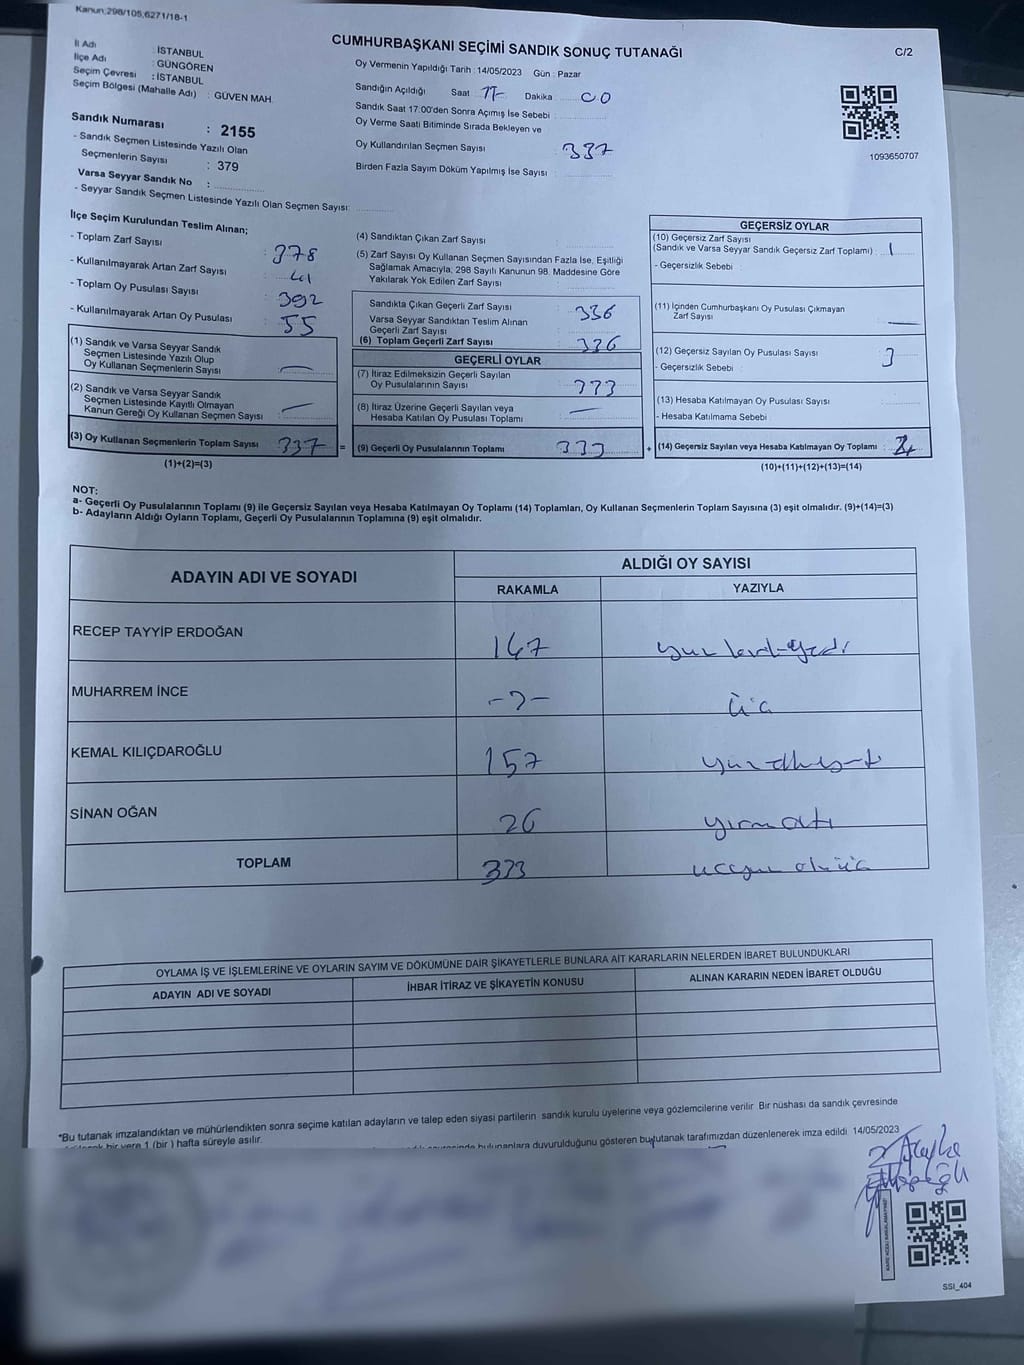 Kanun;298/105,6271/18-1
CUMHURBAŞKANI SEÇİMİ SANDIK SONUÇ TUTANAĞI
C/2
İl Adı : İSTANBUL
İlçe Adı : GÜNGÖREN
Seçim Çevresi : İSTANBUL
Seçim Bölgesi (Mahalle Adı) : GÜVEN MAH.
Sandık Numarası : 2155
- Sandık Seçmen Listesinde Yazılı Olan
Seçmenlerin Sayısı : 379
Varsa Seyyar Sandık No :
- Seyyar Sandık Seçmen Listesinde Yazılı Olan Seçmen Sayısı:
Oy Vermenin Yapıldığı Tarih : 14/05/2023 Gün : Pazar
Sandığın Açıldığı Saat 17 Dakika 00
Sandık Saat 17:00'den Sonra Açımış İse Sebebi :
Oy Verme Saati Bitiminde Sırada Bekleyen ve
Oy Kullandırılan Seçmen Sayısı : 337
Birden Fazla Sayım Döküm Yapılmış İse Sayısı :
1093650707
İlçe Seçim Kurulundan Teslim Alınan;
- Toplam Zarf Sayısı : 378
- Kullanılmayarak Artan Zarf Sayısı : 41
- Toplam Oy Pusulası Sayısı : 392
- Kullanılmayarak Artan Oy Pusulası : 55
(1) Sandık ve Varsa Seyyar Sandık
Seçmen Listesinde Yazılı Olup
Oy Kullanan Seçmenlerin Sayısı : —
(2) Sandık ve Varsa Seyyar Sandık
Seçmen Listesinde Kayıtlı Olmayan
Kanun Gereği Oy Kullanan Seçmen Sayısı : —
(3) Oy Kullanan Seçmenlerin Toplam Sayısı : 337 =
(1)+(2)=(3)
(4) Sandıktan Çıkan Zarf Sayısı :
(5) Zarf Sayısı Oy Kullanan Seçmen Sayısından Fazla İse, Eşitliği
Sağlamak Amacıyla, 298 Sayılı Kanunun 98. Maddesine Göre
Yakılarak Yok Edilen Zarf Sayısı :
Sandıkta Çıkan Geçerli Zarf Sayısı : 336
Varsa Seyyar Sandıktan Teslim Alınan
Geçerli Zarf Sayısı :
(6) Toplam Geçerli Zarf Sayısı : 336
GEÇERLİ OYLAR
(7) İtiraz Edilmeksizin Geçerli Sayılan
Oy Pusulalarının Sayısı : 333
(8) İtiraz Üzerine Geçerli Sayılan veya
Hesaba Katılan Oy Pusulası Toplamı : —
(9) Geçerli Oy Pusulalarının Toplamı : 333 +
GEÇERSİZ OYLAR
(10) Geçersiz Zarf Sayısı
(Sandık ve Varsa Seyyar Sandık Geçersiz Zarf Toplamı) : 1
- Geçersizlik Sebebi :
(11) İçinden Cumhurbaşkanı Oy Pusulası Çıkmayan
Zarf Sayısı : —
(12) Geçersiz Sayılan Oy Pusulası Sayısı : 3
- Geçersizlik Sebebi :
(13) Hesaba Katılmayan Oy Pusulası Sayısı :
- Hesaba Katılmama Sebebi :
(14) Geçersiz Sayılan veya Hesaba Katılmayan Oy Toplamı :
(10)+(11)+(12)+(13)=(14)
NOT:
a- Geçerli Oy Pusulalarının Toplamı (9) ile Geçersiz Sayılan veya Hesaba Katılmayan Oy Toplamı (14) Toplamları, Oy Kullanan Seçmenlerin Toplam Sayısına (3) eşit olmalıdır. (9)+(14)=(3)
b- Adayların Aldığı Oyların Toplamı, Geçerli Oy Pusulalarının Toplamına (9) eşit olmalıdır.
ADAYIN ADI VE SOYADI
ALDIĞI OY SAYISI
RAKAMLA YAZIYLA
RECEP TAYYİP ERDOĞAN 147
MUHARREM İNCE -3- üç
KEMAL KILIÇDAROĞLU 157
SİNAN OĞAN 26
TOPLAM 333
OYLAMA İŞ VE İŞLEMLERİNE VE OYLARIN SAYIM VE DÖKÜMÜNE DAİR ŞİKAYETLERLE BUNLARA AİT KARARLARIN NELERDEN İBARET BULUNDUKLARI
ADAYIN ADI VE SOYADI İHBAR İTİRAZ VE ŞİKAYETİN KONUSU ALINAN KARARIN NEDEN İBARET OLDUĞU
*Bu tutanak imzalandıktan ve mühürlendikten sonra seçime katılan adayların ve talep eden siyasi partilerin sandık kurulu üyelerine veya gözlemcilerine verilir Bir nüshası da sandık çevresinde
bir yere 1 (bir ) hafta süreyle asılır.
bulunanlara duyurulduğunu gösteren bu tutanak tarafımızdan düzenlenerek imza edildi 14/05/2023
SSI_404